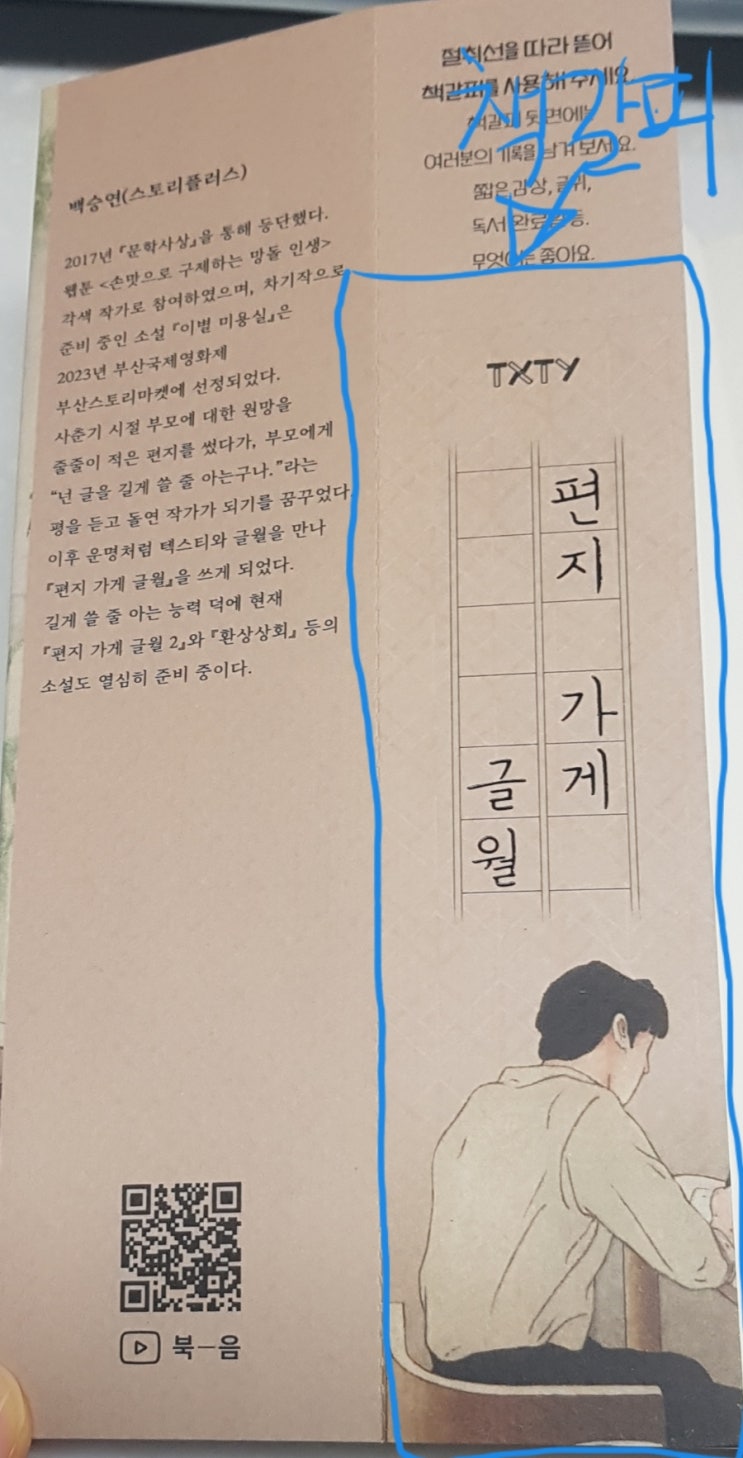 백승연(스토리플러스)
2017년 『문학사상』을 통해 등단했다.
웹툰 <손맛으로 구제하는 망돌 인생>
각색 작가로 참여하였으며, 차기작으로
준비 중인 소설 『이별 미용실』은
2023년 부산국제영화제
부산스토리마켓에 선정되었다.
사춘기 시절 부모에 대한 원망을
줄줄이 적은 편지를 썼다가, 부모에게
“넌 글을 길게 쓸 줄 아는구나.”라는
평을 듣고 돌연 작가가 되기를 꿈꾸었다.
이후 운명처럼 텍스티와 글월을 만나
『편지 가게 글월』을 쓰게 되었다.
길게 쓸 줄 아는 능력 덕에 현재
『편지 가게 글월 2』와 『환상상회』 등의
소설도 열심히 준비 중이다.
북-음
절취선을 따라 뜯어
책갈피를 사용해 주세요.
책갈피 뒷면에는
여러분의 기록을 남겨 보세요.
짧은 감상, 글귀,
독서 완료일 등.
무엇이든 좋아요.
책갈피
TXTY
편지 가게
글월